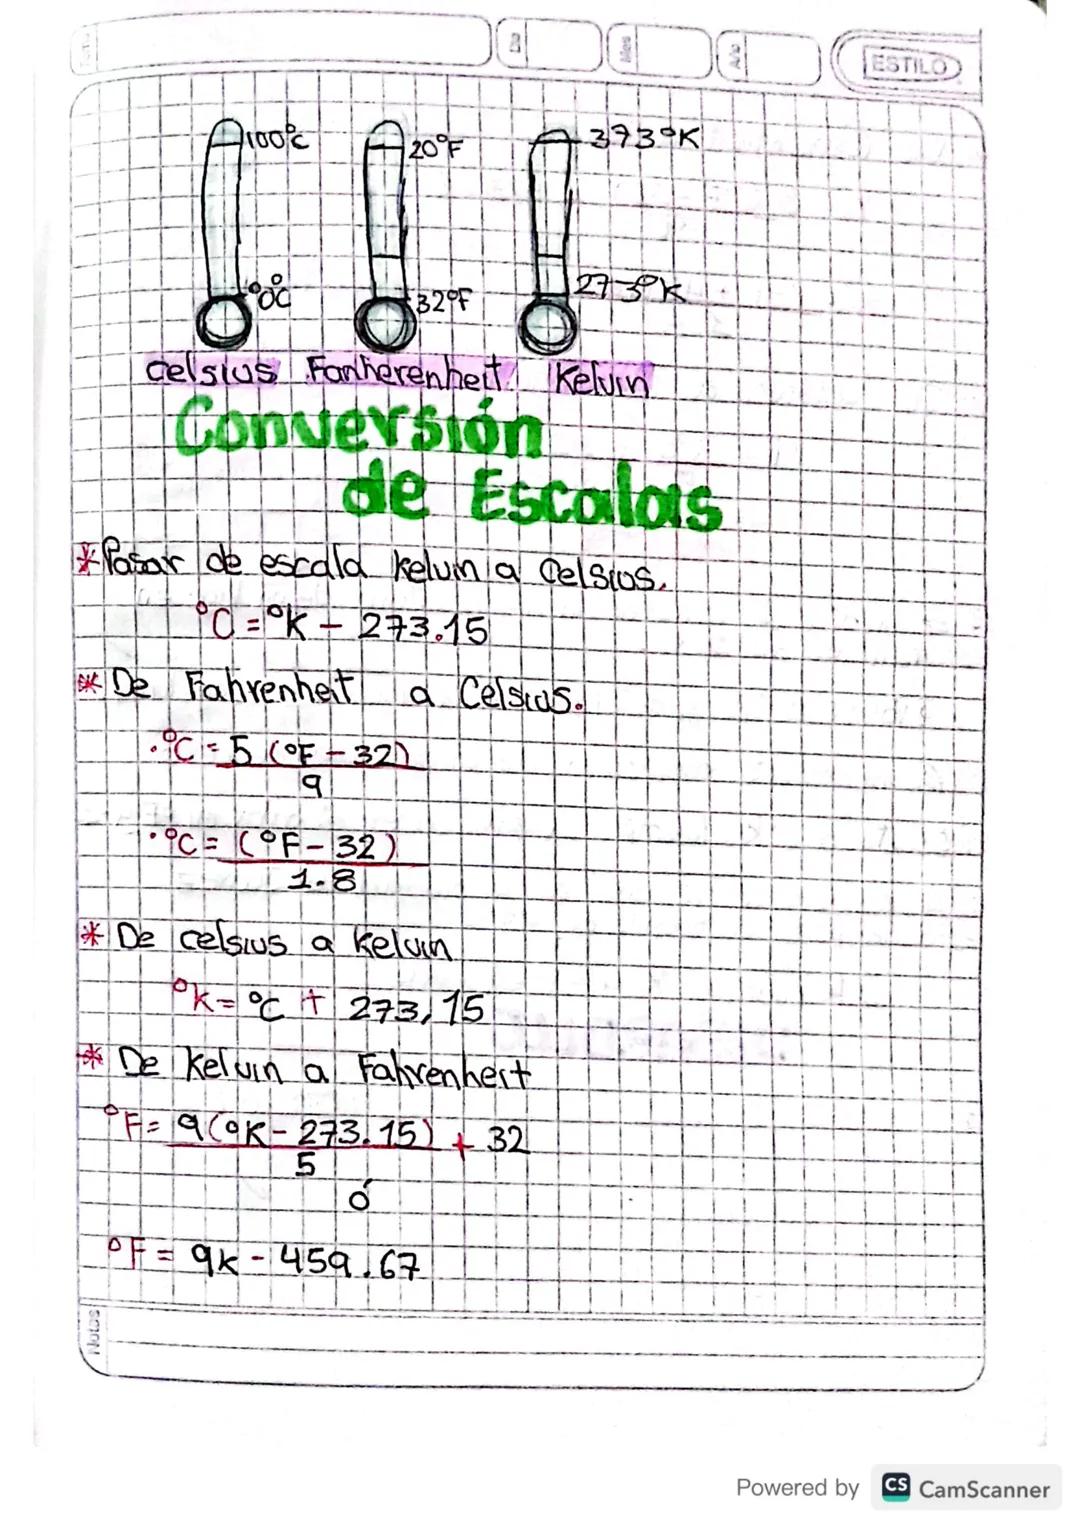 Mes
Año
ESTILO
100°C
20°F
373°K
0°C
32°F
273°K
Celsius Fanherenheit Kelvin
Conversión
de Escalas
* Pasar de escala Kelvin a Celsius.
°C = °K - 273.15
* De Fahrenheit a Celsius.
. °C = 5 (°F - 32)
9
. °C = (°F - 32)
1.8
* De celsius a Kelvin
°K = °C + 273,15
* De Kelvin a Fahrenheit
°F = 9(°K - 273.15) + 32
5
ó
°F = 9K - 459.67
Notas
Powered by CS CamScanner